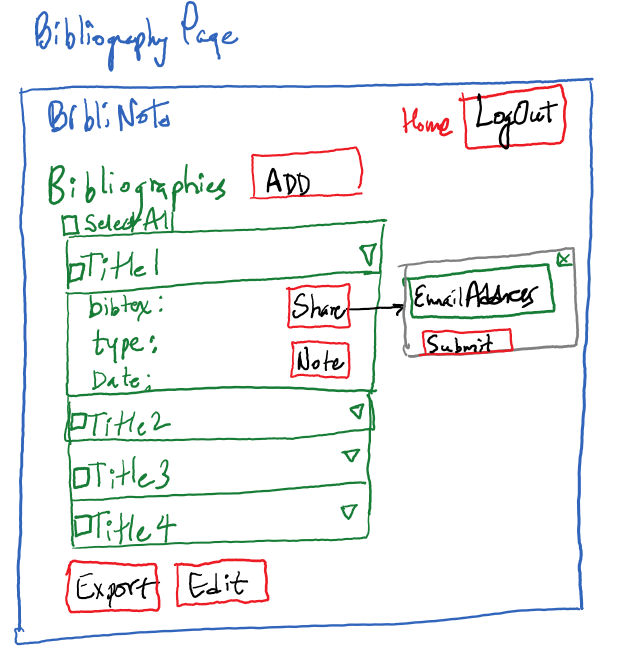 Bibliography Page
BibliNote
Home LogOut
Bibliographies ADD
Select All
Title1
bibtex: Share EmailAddress
type: Note Submit
Date:
Title2
Title3
Title4
Export Edit